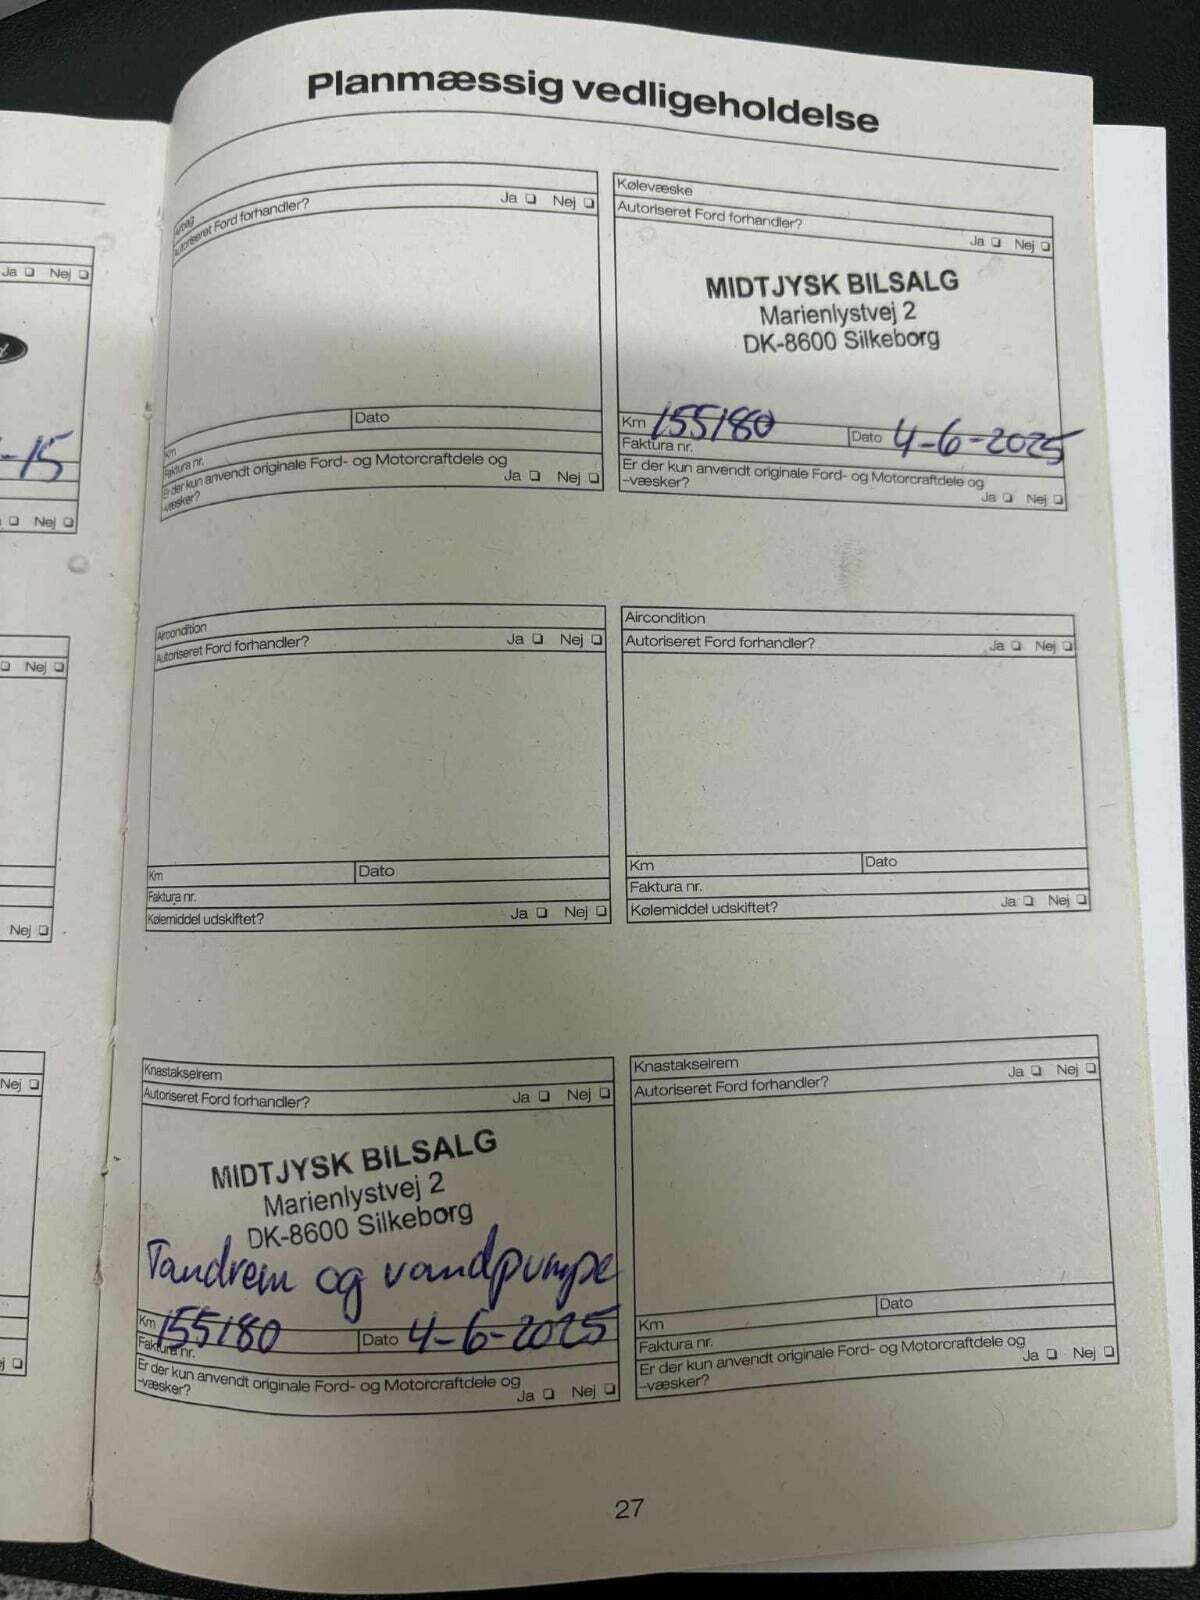 Planmæssig vedligeholdelse
Ja ❏ Nej ❏
-15
Ja ❏ Nej ❏
Nej ❏
Nej ❏
Nej ❏
Airbag
Autoriseret Ford forhandler? Ja ❏ Nej ❏
Km Dato
Faktura nr.
Er der kun anvendt originale Ford- og Motorcraftdele og
-væsker? Ja ❏ Nej ❏
Kølevæske
Autoriseret Ford forhandler?
Ja ❏ Nej ❏
MIDTJYSK BILSALG
Marienlystvej 2
DK-8600 Silkeborg
Km 155180 Dato 4-6-2025
Faktura nr.
Er der kun anvendt originale Ford- og Motorcraftdele og
-væsker? Ja ❏ Nej ❏
Aircondition
Autoriseret Ford forhandler? Ja ❏ Nej ❏
Km Dato
Faktura nr.
Kølemiddel udskiftet? Ja ❏ Nej ❏
Aircondition
Autoriseret Ford forhandler? Ja ❏ Nej ❏
Km Dato
Faktura nr.
Kølemiddel udskiftet? Ja ❏ Nej ❏
Knastakselrem
Autoriseret Ford forhandler? Ja ❏ Nej ❏
MIDTJYSK BILSALG
Marienlystvej 2
DK-8600 Silkeborg
Tandrem og vandpumpe
Km 155180 Dato 4-6-2025
Faktura nr.
Er der kun anvendt originale Ford- og Motorcraftdele og
-væsker? Ja ❏ Nej ❏
Knastakselrem
Autoriseret Ford forhandler? Ja ❏ Nej ❏
Km Dato
Faktura nr.
Er der kun anvendt originale Ford- og Motorcraftdele og
-væsker? Ja ❏ Nej ❏
27